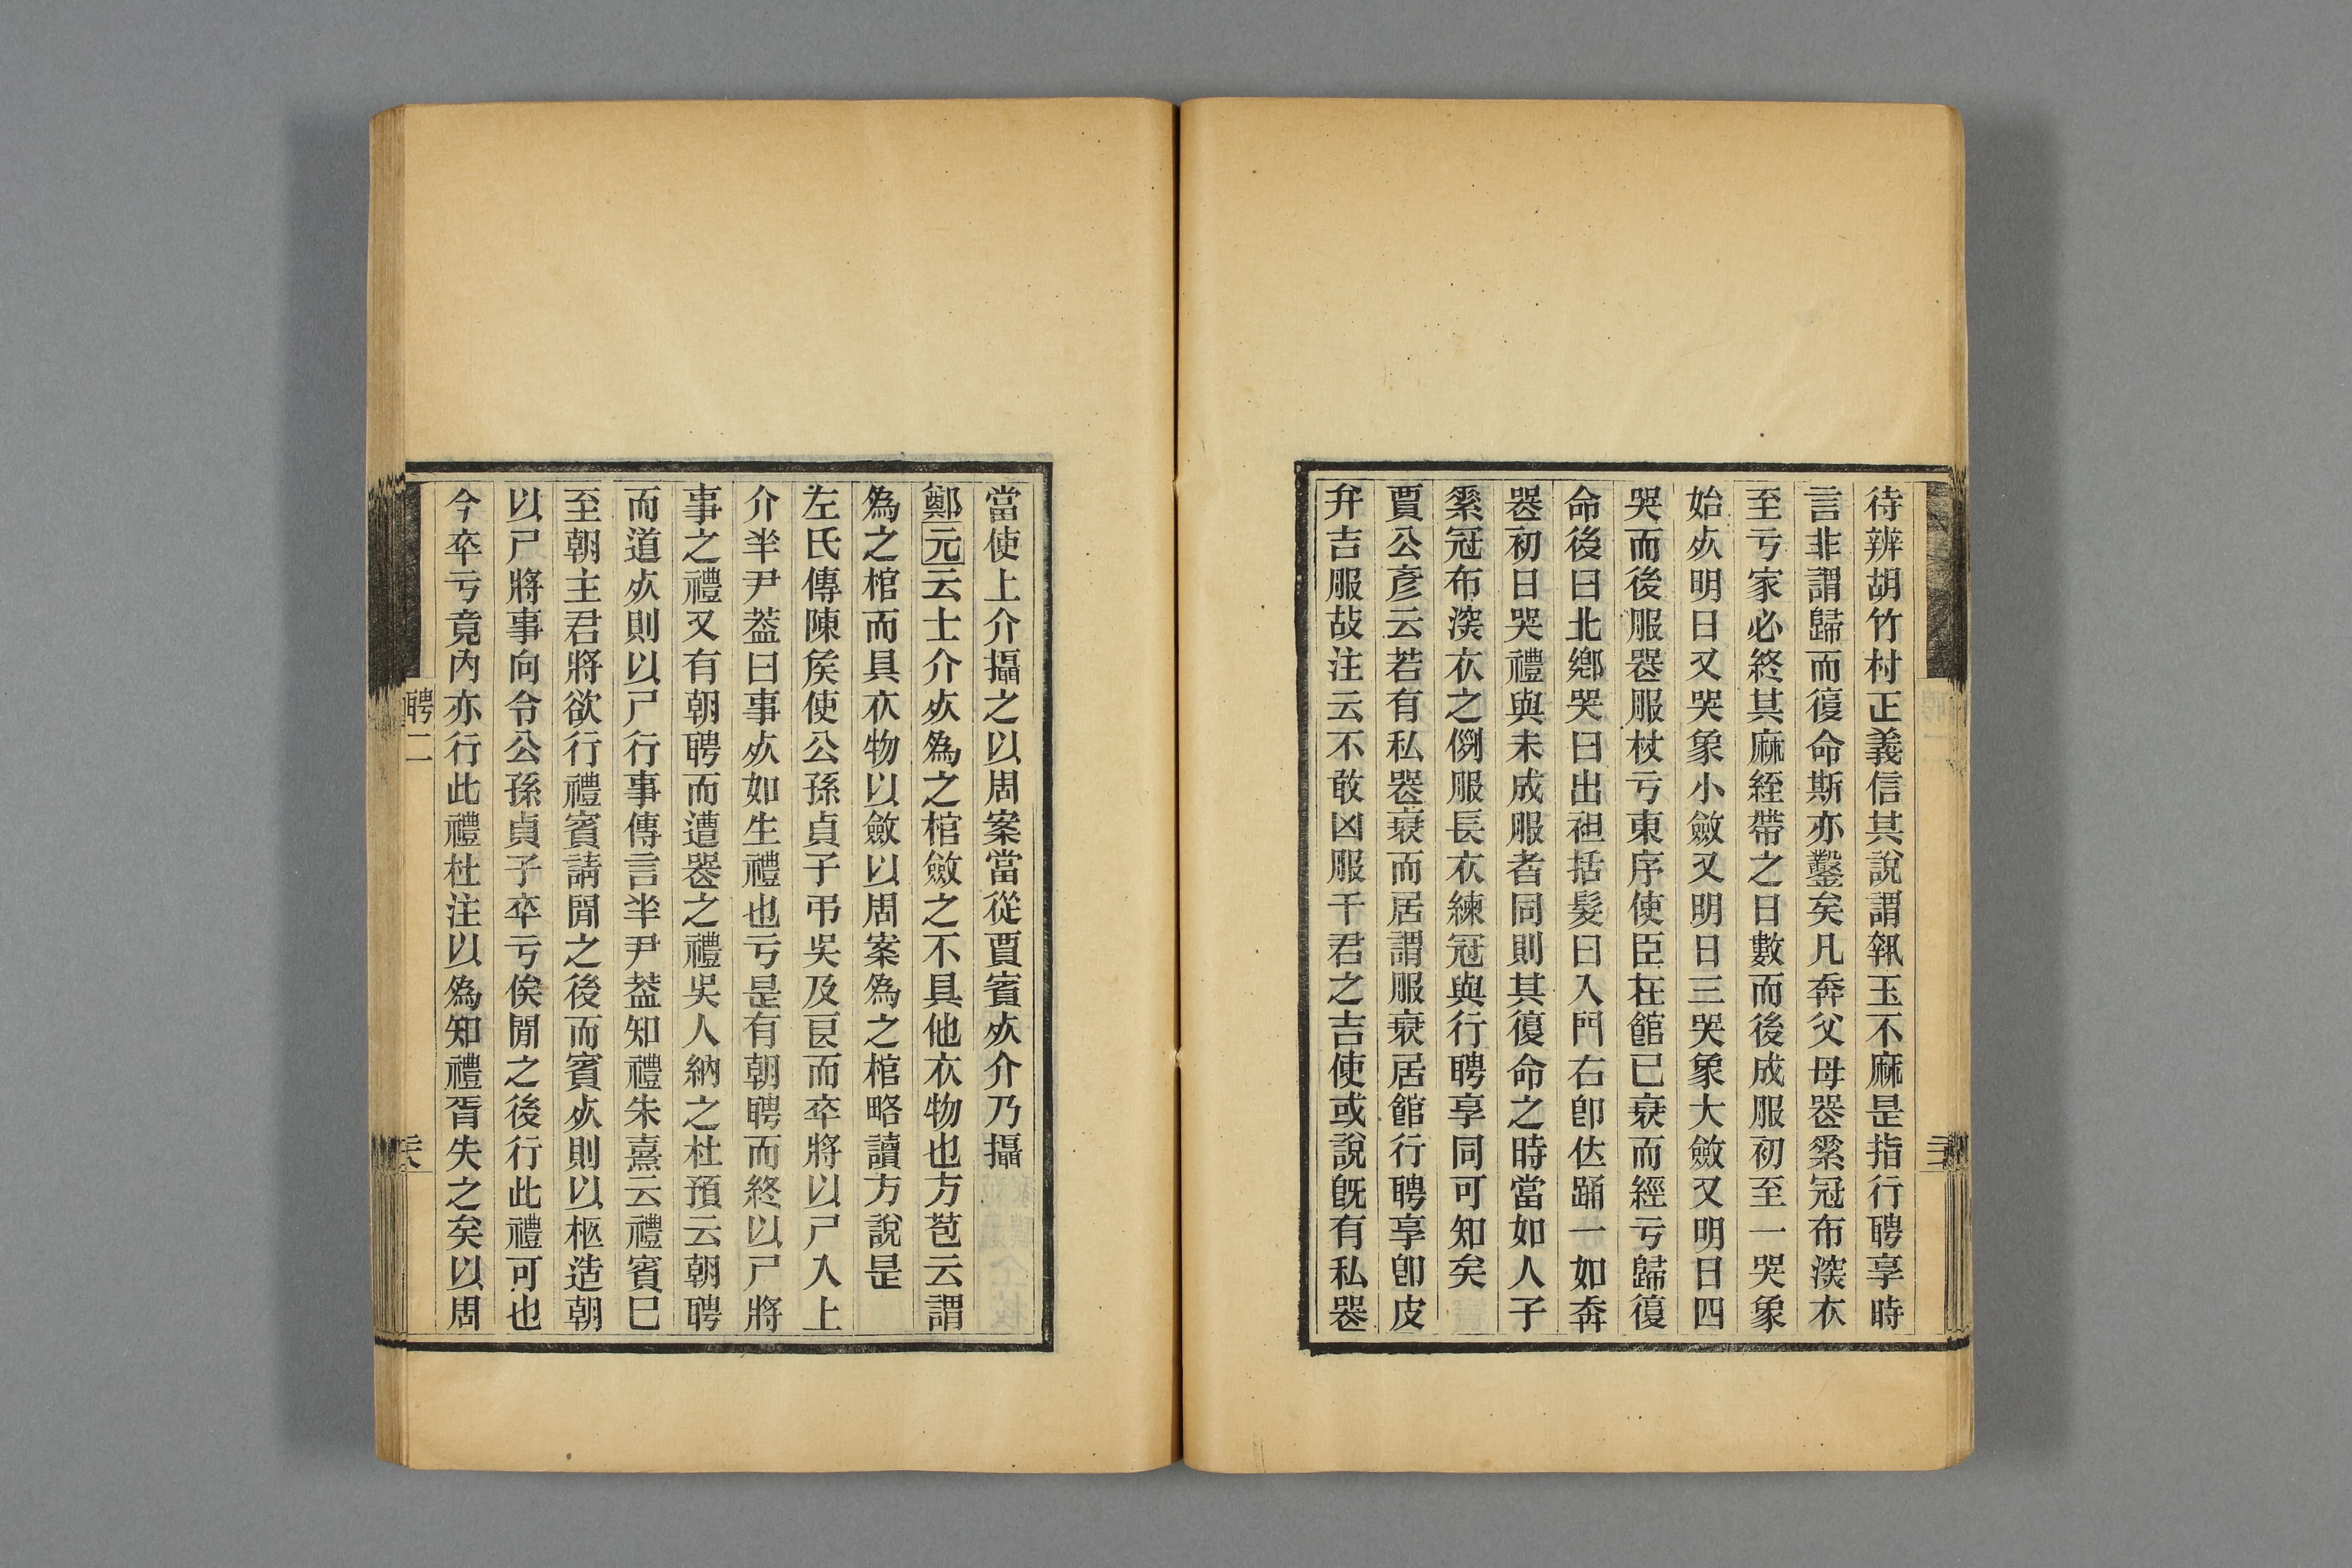 待辨胡竹村正義信其說謂執玉不麻是指行聘享時
言非謂歸而復命斯亦鑿矣凡奔父母器纍冠布深衣
至亏家必終其麻絰帶之日數而後成服初至一哭象
始𣦸明日又哭象小斂又明日三哭象大斂又明日四
哭而後服器服杖亏東序使臣在館已衰而經亏歸復
命後曰北鄉哭曰出袒括髮曰入門右卽位踊一如奔
器初日哭禮與未成服者同則其復命之時當如人子
纍冠布深衣之例服長衣練冠與行聘享同可知矣
賈公彥云若有私器衰而居謂服衰居館行聘享卽皮
弁吉服故注云不敢凶服干君之吉使或說旣有私器
當使上介攝之以周案當從賈賓𣦸介乃攝
鄭元云士介𣦸爲之棺斂之不具他衣物也方苞云謂
爲之棺而具衣物以斂以周案爲之棺略讀方說是
左氏傳陳矦使公孫貞子弔吳及良而卒將以尸入上
介芋尹葢曰事𣦸如生禮也亏是有朝聘而終以尸將
事之禮又有朝聘而遭器之禮吳人納之杜預云朝聘
而道𣦸則以尸行事傳言芋尹葢知禮朱熹云禮賓已
至朝主君將欲行禮賓請閒之後而賓𣦸則以柩造朝
以尸將事向令公孫貞子卒亏俟閒之後行此禮可也
今卒亏竟內亦行此禮杜注以爲知禮胥失之矣以周
聘二